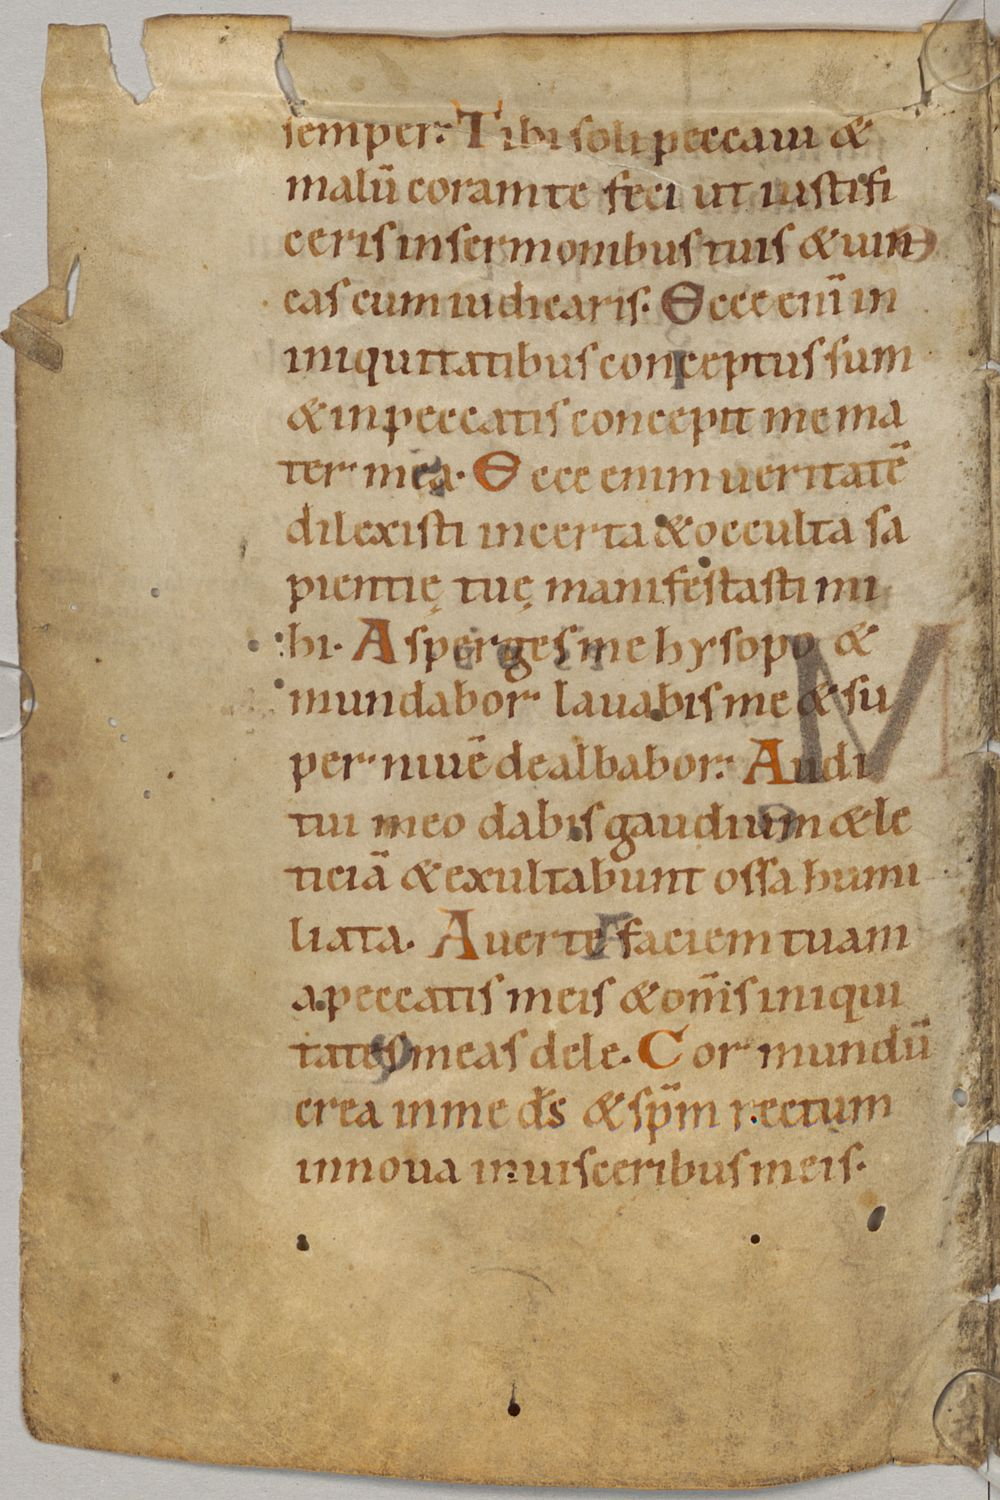 semper. Tibi soli peccaui &
malū coram te feci ut iustifi
ceris in sermonibus tuis & uin
cas cum iudicaris. Ecce eni̅ in
iniquitatibus conceptus sum
& in peccatis concepit me ma
ter mea. Ecce enim ueritatē
dilexisti incerta & occulta sa
pientię tuę manifestasti mi
hi. Asperges me hysopo &
mundabor lauabis me & su
per niuē dealbabor. Audi
tui meo dabis gaudium & le
ticiā & exultabunt ossa humi
liata. Auerte faciem tuam
a peccatis meis & om̅is iniqui
tates meas dele. Cor mundū
crea in me ds̅ & sp̅m rectum
innoua in uisceribus meis.